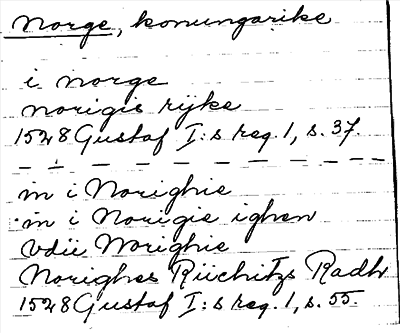 Norge, konungarike
i norge
norigis rijke
1528 Gustaf I:s reg. 1, s. 37.
in i Norighie
in i Norigie ighen
vdii Norighie
Norighes Riichitzs Radh
1528 Gustaf I:s reg. 1, s. 55.